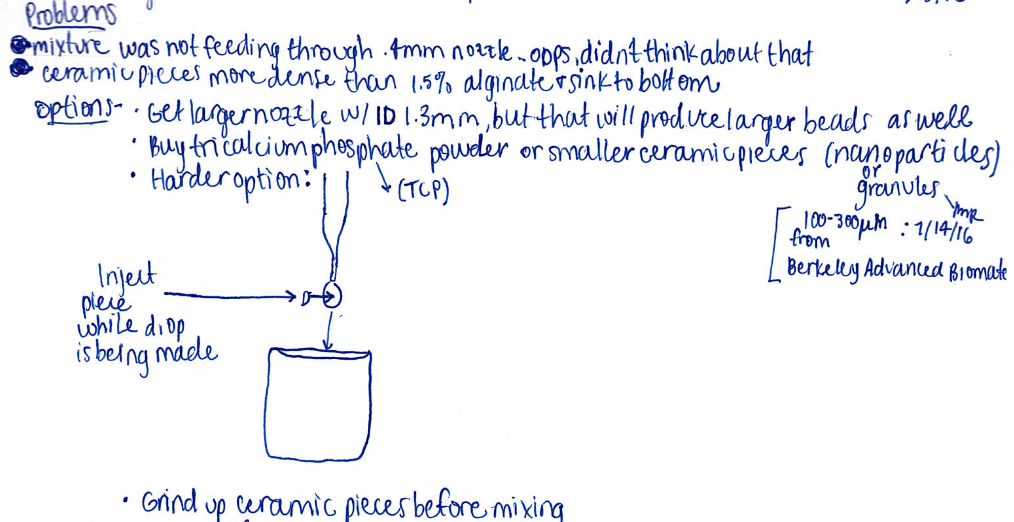 Problems
mixture was not feeding through .4mm nozzle - opps, didn't think about that
ceramic pieces more dense than 1.5% alginate & sink to bottom
options - · Get larger nozzle w/ ID 1.3mm, but that will produce larger beads as well
· Buy tricalcium phosphate powder or smaller ceramic pieces (nanoparticles)
or
granules
· Harder option:
(TCP)
100-300µm : 7/14/16
from
Berkeley Advanced Biomate
Inject
piece
while drop
is being made
· Grind up ceramic pieces before mixing